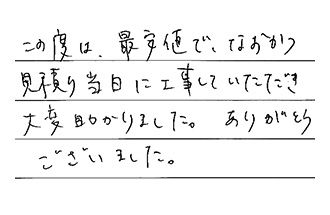 この度は、最安値で、なおかつ
見積り当日に工事していただき
大変助かりました。ありがとう
ございました。